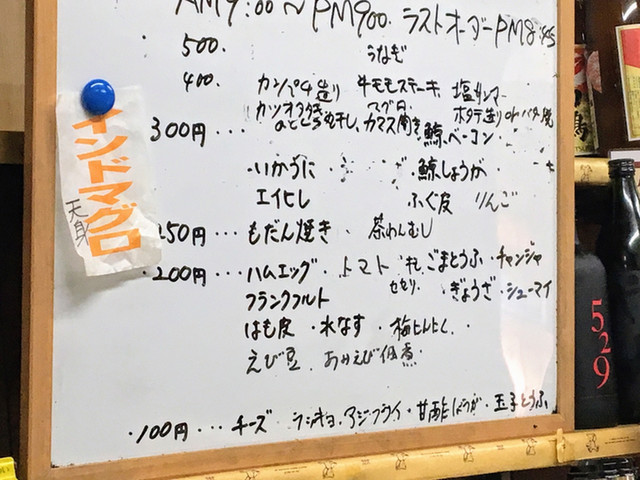 AM9:00～PM900. ラストオーダーPM8:45
500. うなぎ
400. カンパチ造り 牛モモステーキ 塩サンマ
カツオタタキ マグロ ホタテ造りorバター焼
300円・・・ のどぐろ丸干し、カマス開き 鯨ベーコン
・いかうに ・鯨しょうが
エイヒレ ふぐ皮 りんご
150円・・・もだん焼き、茶わんむし
・200円・・・ハムエッグ・トマト ごまとうふ・チャンジャ
フランクフルト セセリ ・ぎょうざ・シューマイ
はも皮 ・水なす・梅にんにく
えび豆 おやえび佃煮
・100円・・・チーズ ラッキョ・アジフライ・甘酢しょうが・玉子とうふ
インドマグロ
天身
529